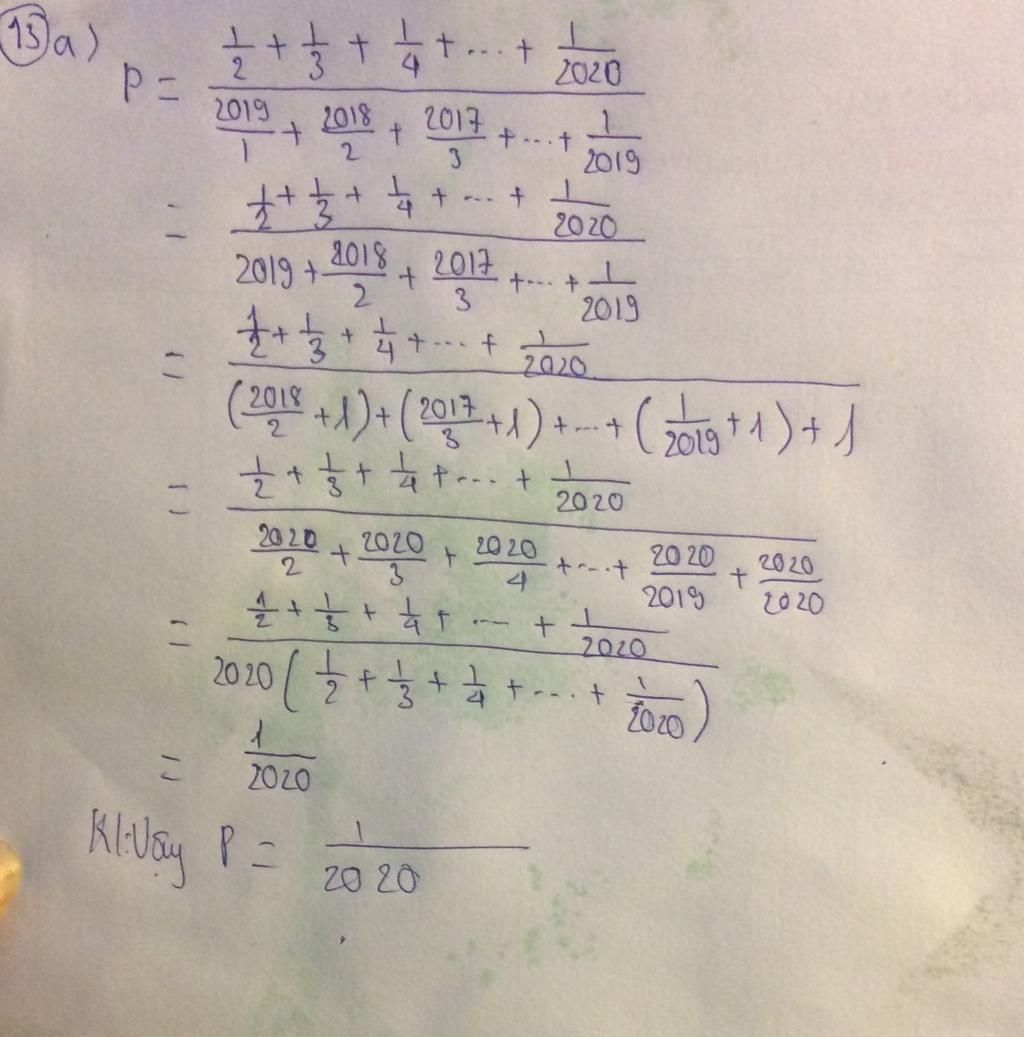 13 a)
P = (1/2 + 1/3 + 1/4 + ... + 1/2020) / (2019/1 + 2018/2 + 2017/3 + ... + 1/2019)
= (1/2 + 1/3 + 1/4 + ... + 1/2020) / (2019 + 2018/2 + 2017/3 + ... + 1/2019)
= (1/2 + 1/3 + 1/4 + ... + 1/2020) / ((2018/2 + 1) + (2017/3 + 1) + ... + (1/2019 + 1) + 1)
= (1/2 + 1/3 + 1/4 + ... + 1/2020) / (2020/2 + 2020/3 + 2020/4 + ... + 2020/2019 + 2020/2020)
= (1/2 + 1/3 + 1/4 + ... + 1/2020) / (2020(1/2 + 1/3 + 1/4 + ... + 1/2020))
= 1/2020
Kl: Vậy P = 1/2020